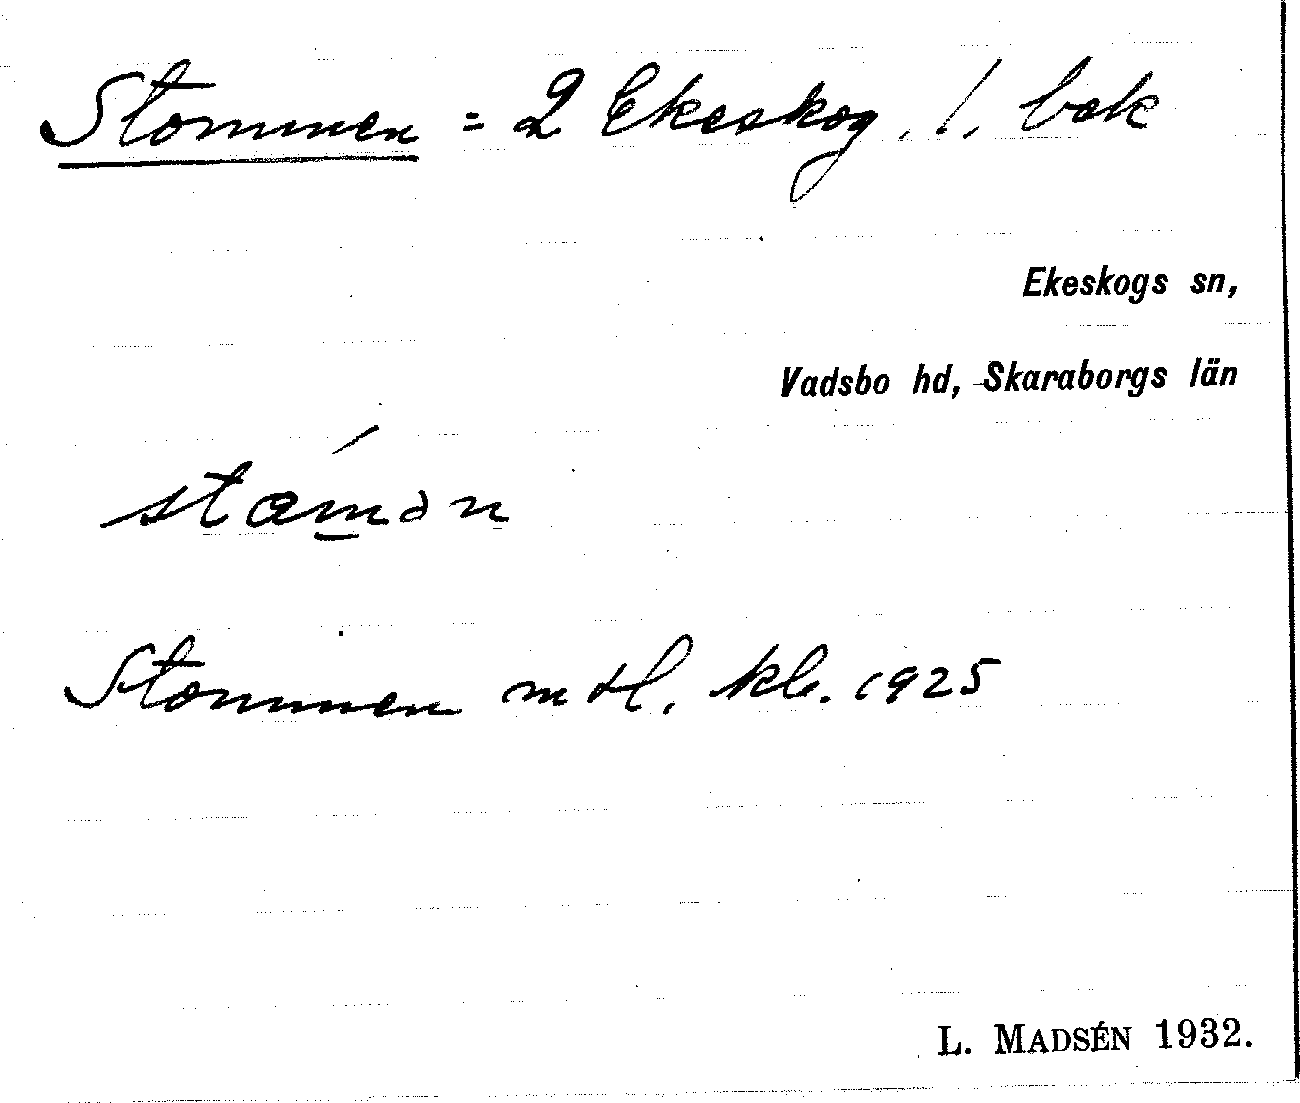 Stommen = 2 Ekeskog, 1. bok
Ekeskogs sn,
Vadsbo hd, Skaraborgs län
stǽmən
Stommen mtl, kb. 1925
L. MADSÉN 1932.